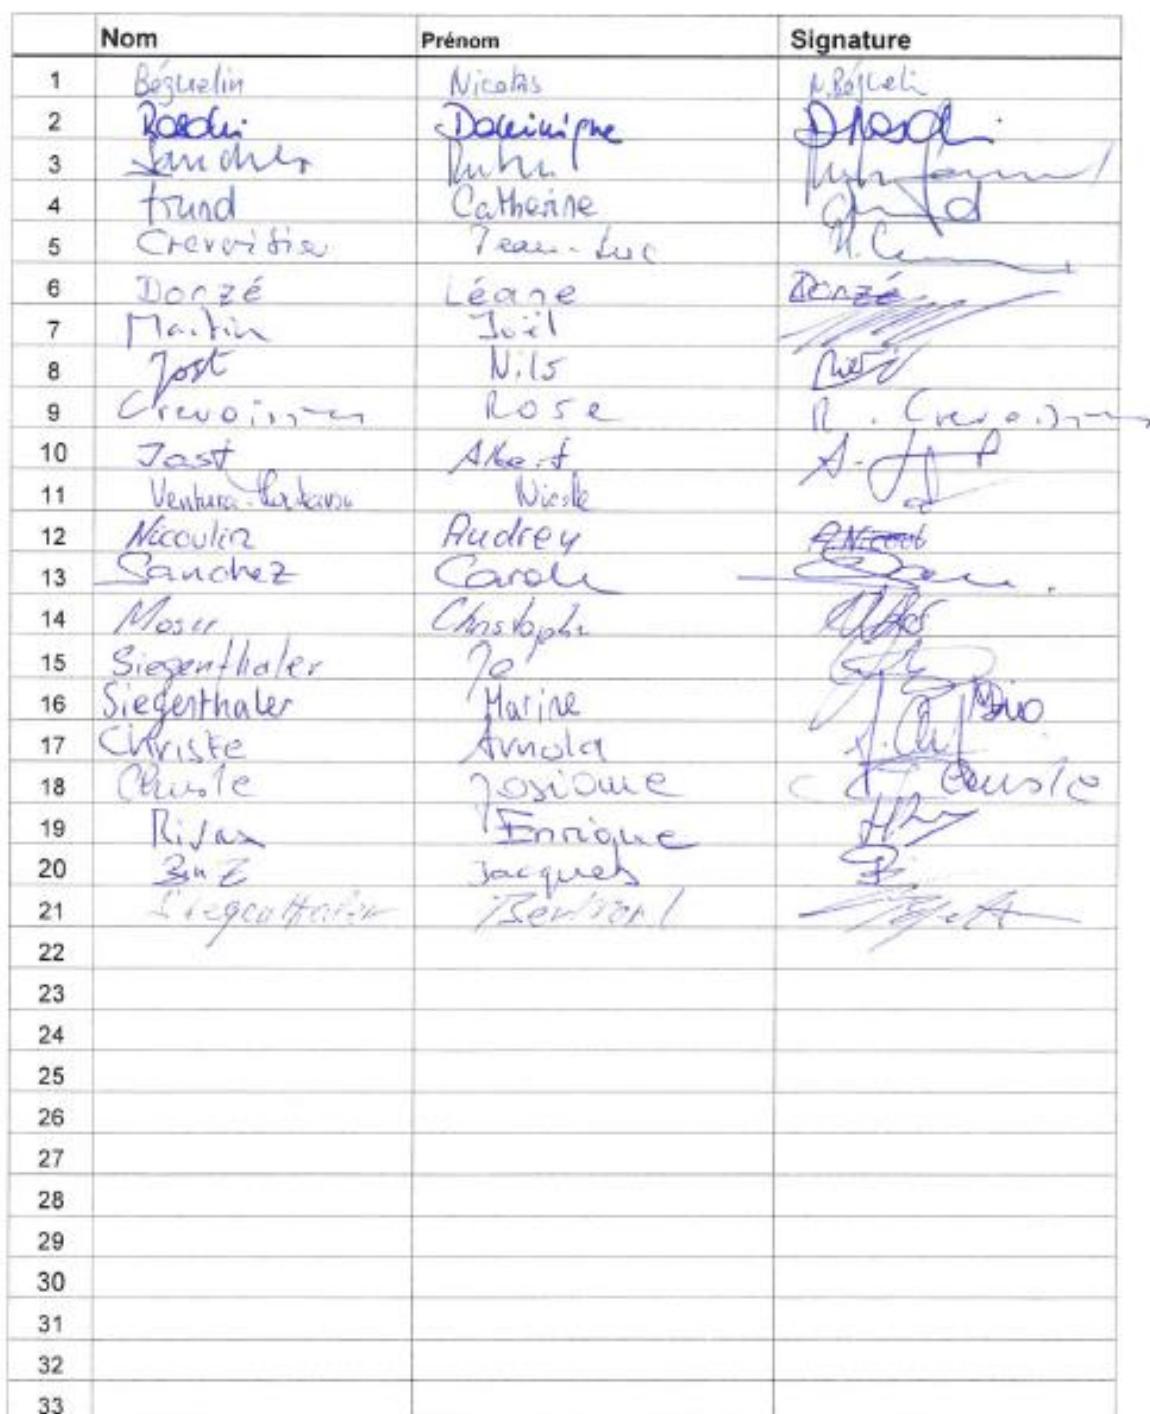 Nom Prénom Signature
1 Béguelin Nicolas N. Béguelin
2 Dominique
3
4 Frund Catherine
5 Crevoisier Jean-Luc
6 Donzé Léane Donzé
7 Martin Joël
8 Jost Nils
9 Crevoisier Rose R. Crevoisier
10 Jost Albert A.
11 Ventura Nicole
12 Nicoulin Audrey A. Nicoul
13 Sanchez Carole
14 Moser Christophe
15 Siegenthaler Jo
16 Siegenthaler Marine
17 Christe Arnold
18 Christe Josiane Christe
19 Rivas Enrique
20 Binz Jacques
21 Siegenthaler Bertrand
22
23
24
25
26
27
28
29
30
31
32
33